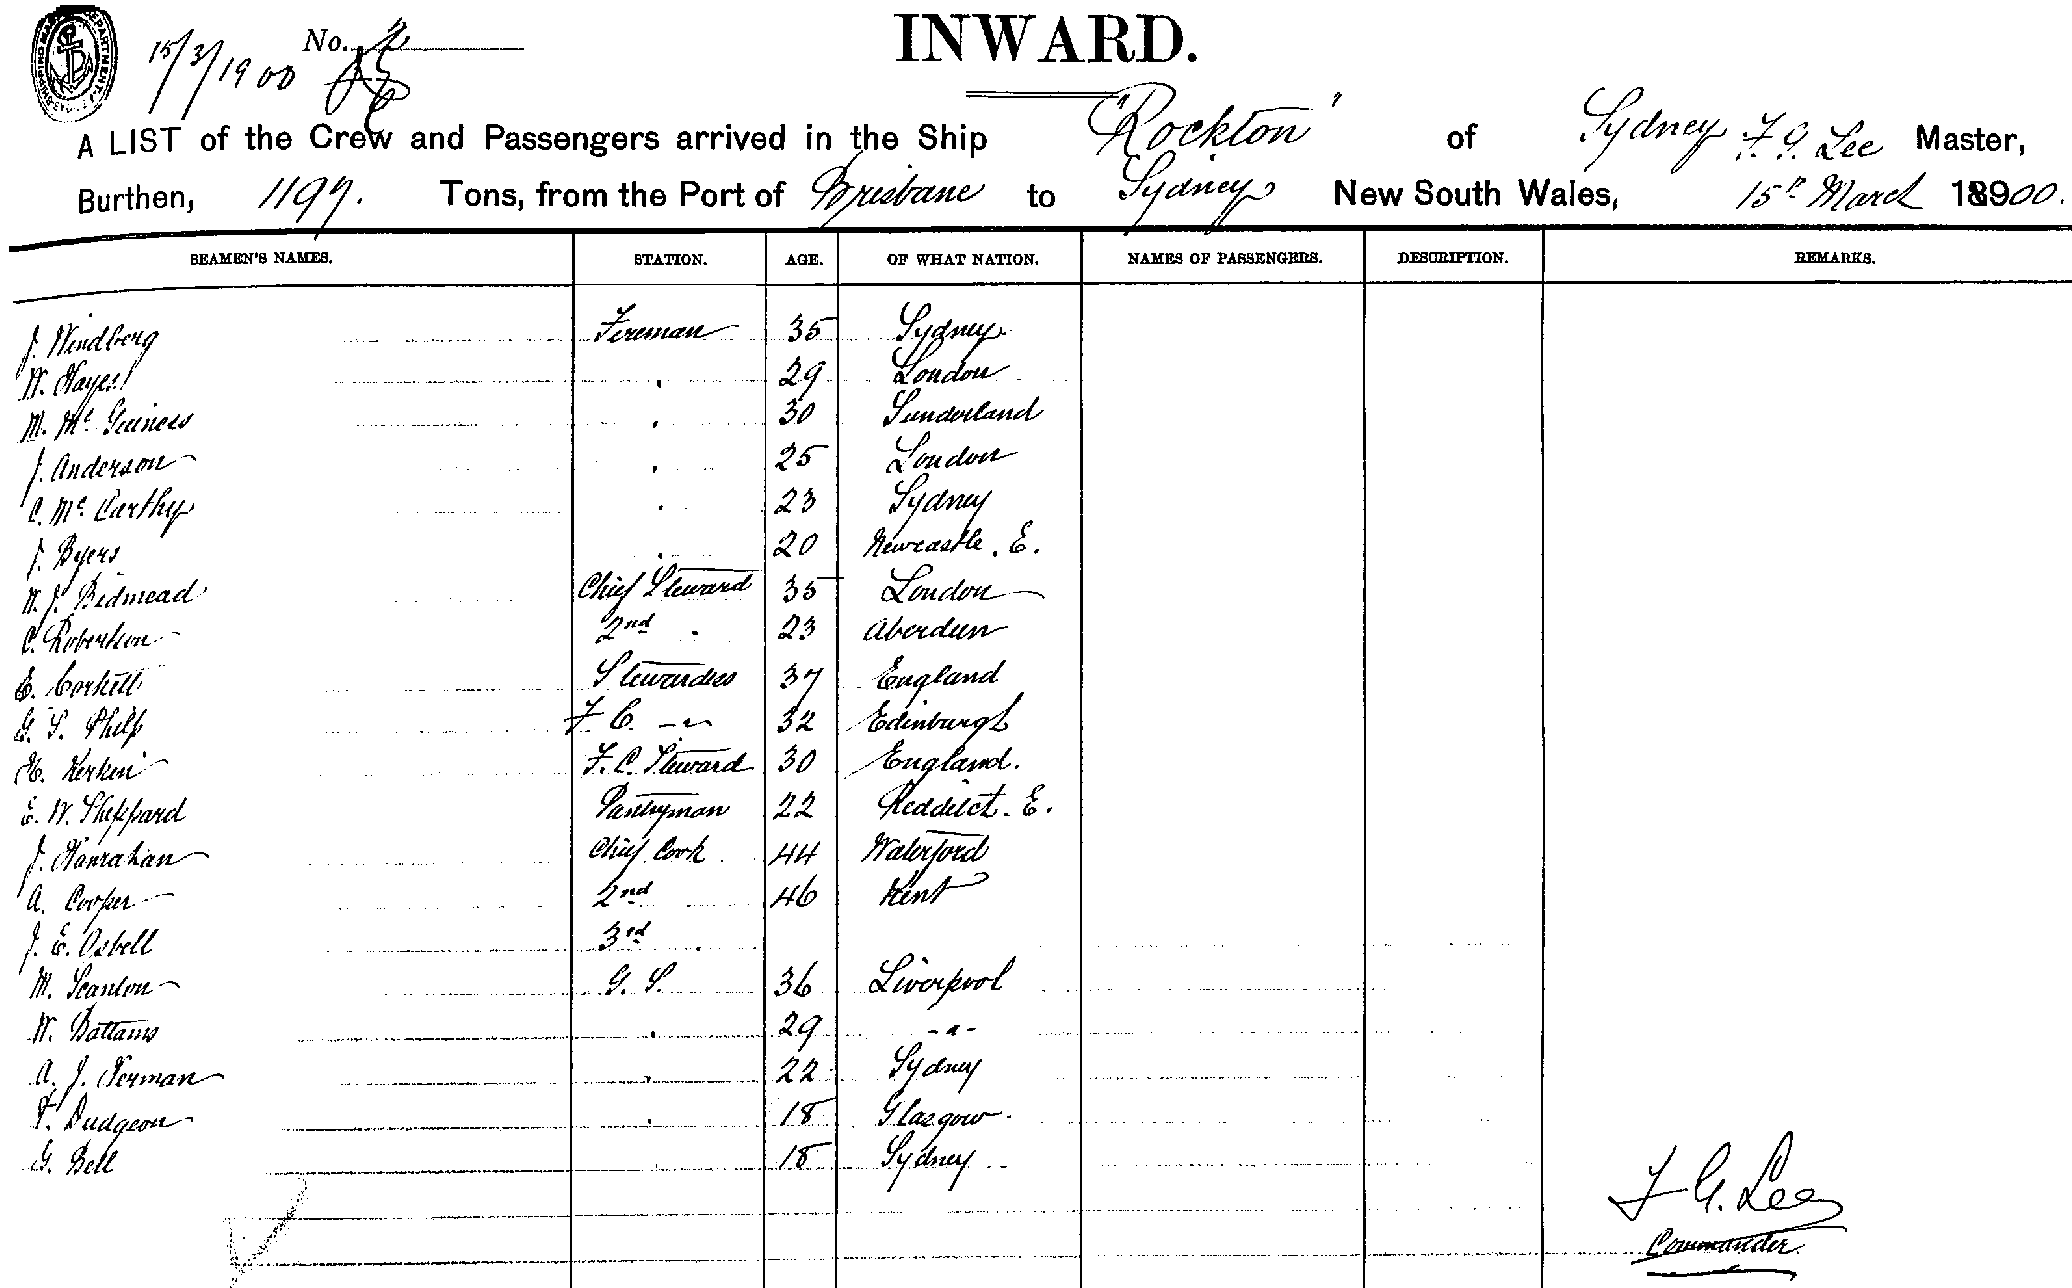 15/3/1900 No.
INWARD.
A LIST of the Crew and Passengers arrived in the Ship "Rockton" of Sydney F. G. Lee Master,
Burthen, 1197. Tons, from the Port of Brisbane to Sydney New South Wales, 15th March 18900.
SEAMEN'S NAMES. STATION. AGE. OF WHAT NATION. NAMES OF PASSENGERS. DESCRIPTION. REMARKS.
J. Windberg Fireman 35 Sydney
W. Hayes 29 London
M. Mc Guiness 30 Sunderland
J. Anderson 25 London
C. Mc Carthy 23 Sydney
J. Byers 20 Newcastle. E.
W. J. Bidmead Chief Steward 35 London
C. Robertson 2nd 23 Aberdeen
E. Corkett Stewardess 37 England
G. S. Philp F. C. -"- 32 Edinburgh
H. Kerkin F. C. Steward 30 England.
E. W. Sheppard Pantryman 22 Redditch. E.
J. Hanrahan Chief Cook 44 Waterford
A. Cooper 2nd 46 Kent
J. E. Osbell 3rd
M. Scanlon G. S. 36 Liverpool
W. Battams 29 -"-
A. J. Herman 22 Sydney
F. Dudgeon 18 Glasgow
G. Bell 18 Sydney
F G. Lee
Commander